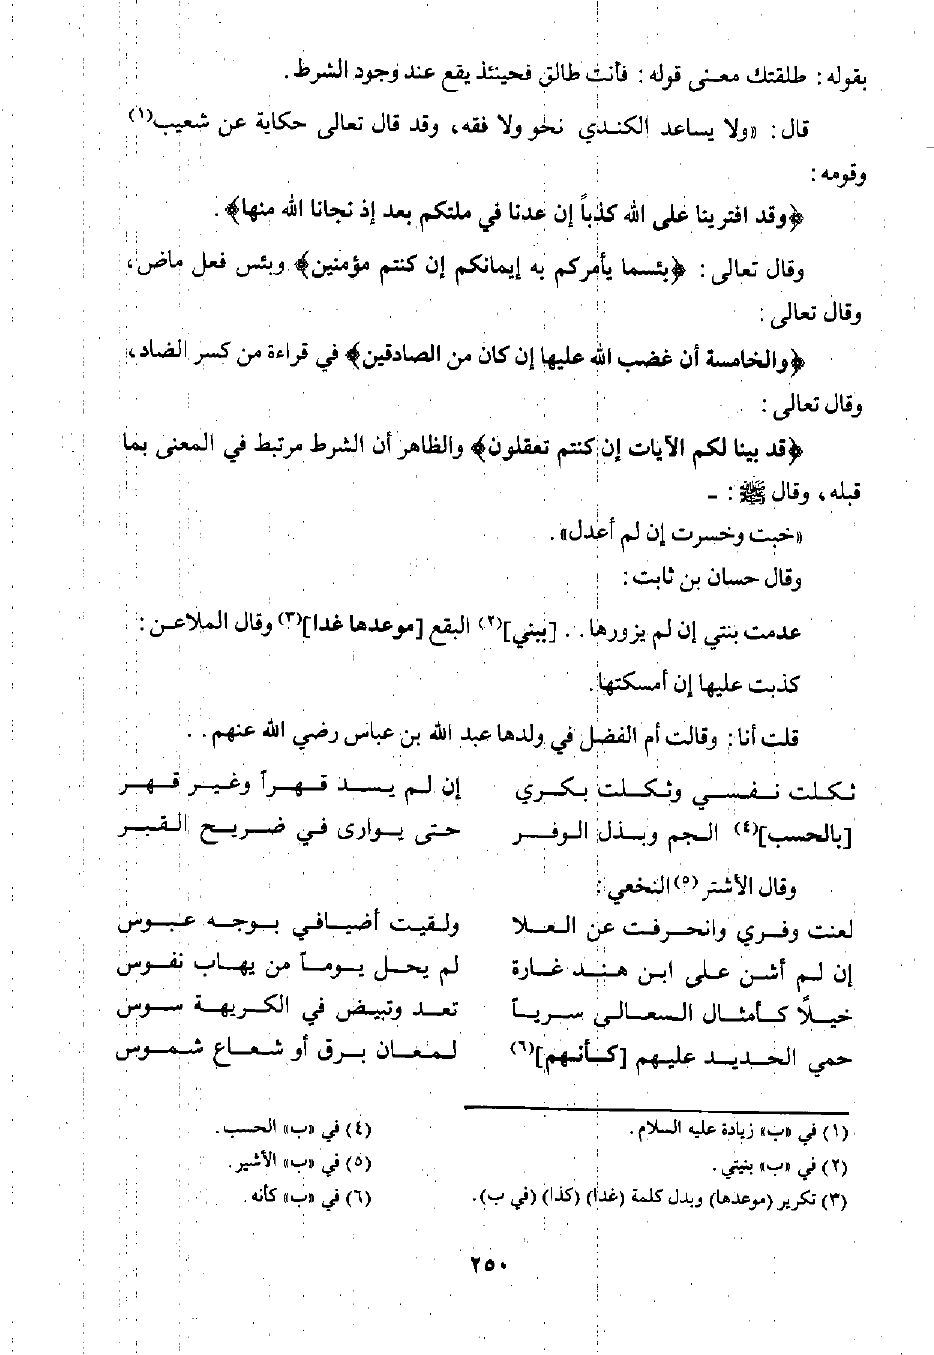 بقوله : طلقتك معنى قوله : فأنت طالق فحينئذ يقع عند وجود الشرط .
قال : «ولا يساعد الكندي نحو ولا فقه ، وقد قال تعالى حكاية عن شعيب(١)
وقومه :
﴿وقد افترينا على الله كذباً إن عدنا في ملتكم بعد إذ نجانا الله منها﴾ .
وقال تعالى : ﴿بئسما يأمركم به إيمانكم إن كنتم مؤمنين﴾ وبئس فعل ماض ،
وقال تعالى :
﴿والخامسة أن غضب الله عليها إن كان من الصادقين﴾ في قراءة من كسر الضاد ،
وقال تعالى :
﴿قد بينا لكم الآيات إن كنتم تعقلون﴾ والظاهر أن الشرط مرتبط في المعنى بما
قبله ، وقال ﷺ : -
«خبت وخسرت إن لم أعدل» .
وقال حسان بن ثابت :
عدمت بنتي إن لم يزورها . . [بيني](٢) البقع [موعدها غدا](٣) وقال الملاعن :
كذبت عليها إن أمسكتها .
قلت أنا : وقالت أم الفضل في ولدها عبد الله بن عباس رضي الله عنهم . .
ثكلت نفسي وثكلت بكري إن لم يسد قهراً وغير قهر
[بالحسب](٤) الجم وبذل الوفر حتى يوارى في ضريح القبر
وقال الأشتر(٥) النخعي :
لعنت وفري وانحرفت عن العلا ولقيت أضيافي بوجه عبوس
إن لم أشن على ابن هند غارة لم يحل يوماً من يهاب نفوس
خيلًا كأمثال السعالى سرياً تعد وتبيض في الكريهة سوس
حمي الحديد عليهم [كأنهم](٦) لمعان برق أو شعاع شموس
(١) في «ب» زيادة عليه السلام .
(٢) في «ب» بنيتي .
(٣) تكرير (موعدها) وبدل كلمة (غدا) (كذا) (في ب) .
(٤) في «ب» الحسب .
(٥) في «ب» الأشير .
(٦) في «ب» كأنه .
٢٥٠